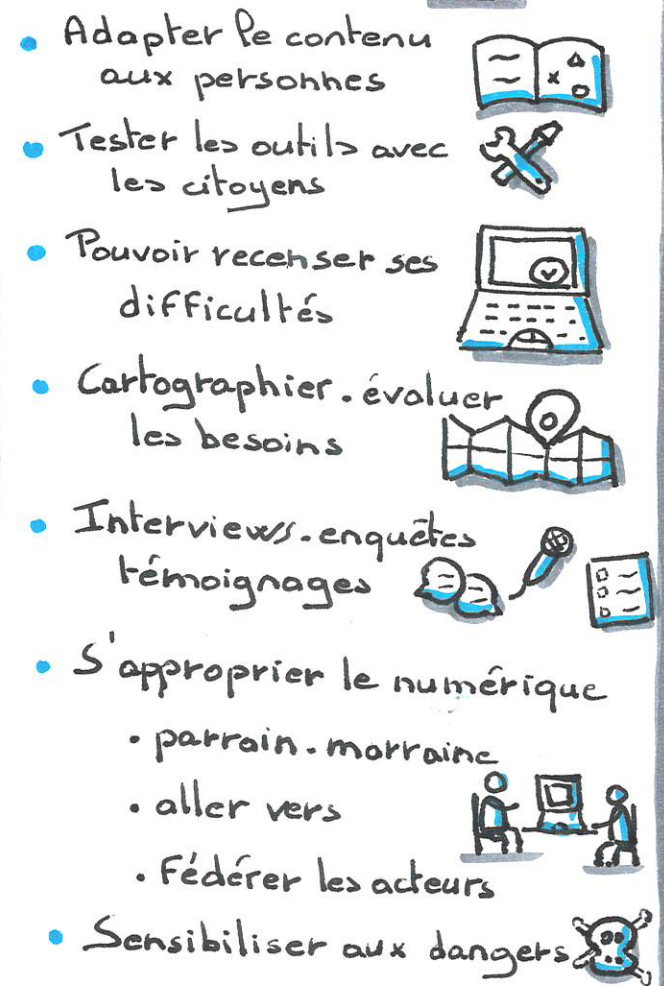 • Adapter le contenu
aux personnes
• Tester les outils avec
les citoyens
• Pouvoir recenser ses
difficultés
• Cartographier. évaluer
les besoins
• Interviews. enquêtes
témoignages
• S'approprier le numérique
• parrain. marraine
• aller vers
• Fédérer les acteurs
• Sensibiliser aux dangers